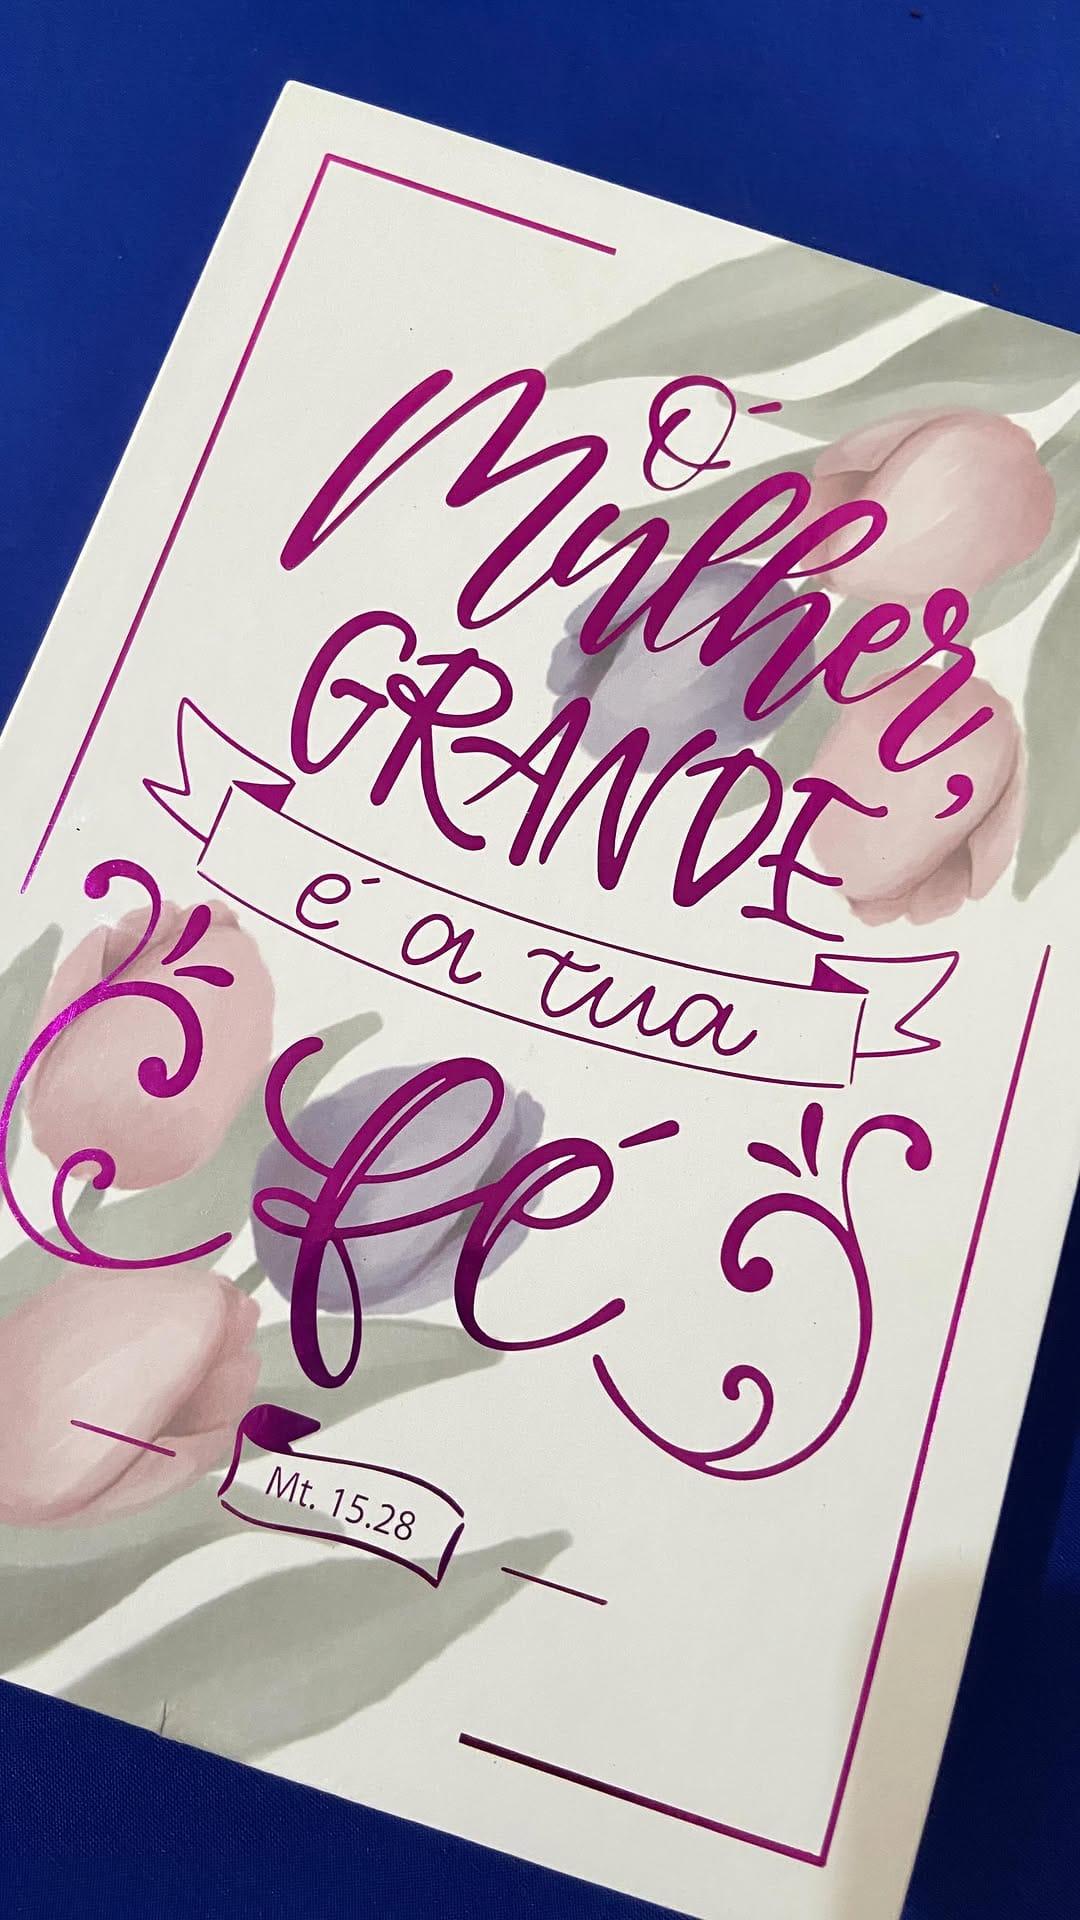 Ó
Mulher,
GRANDE
é a tua
fé
Mt. 15.28